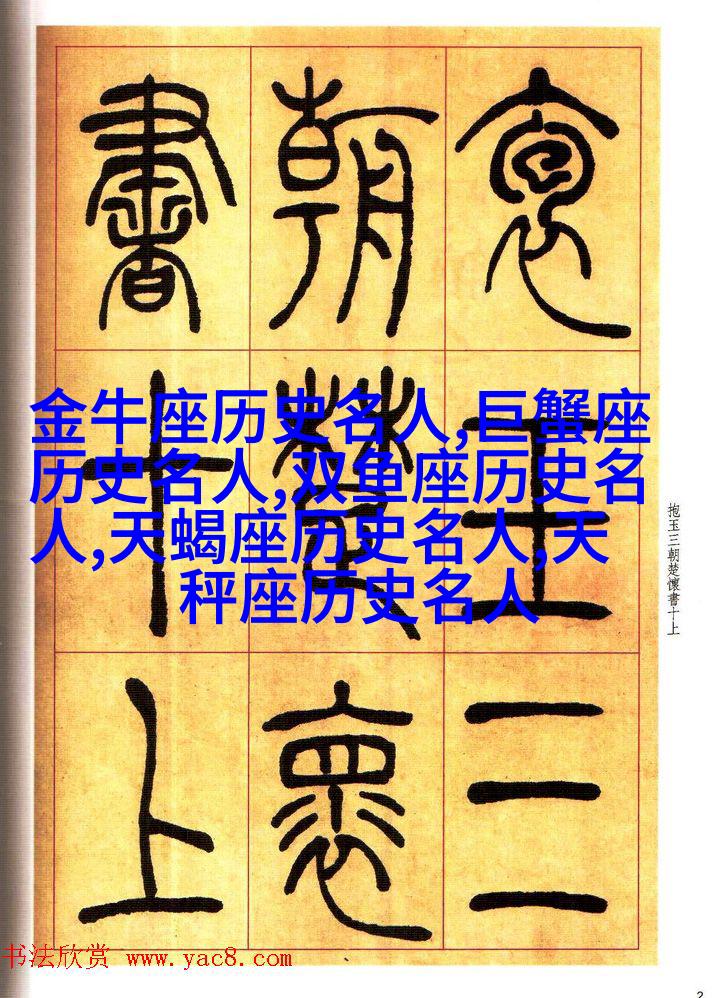 袌玉三
朝楚褱
書十上
抱玉三朝楚懷書十上
金牛座历史名人,巨蟹座
历史名人,双鱼座历史名
人,天蝎座历史名人,天
秤座历史名人
书法欣赏 www.yac8.com
2